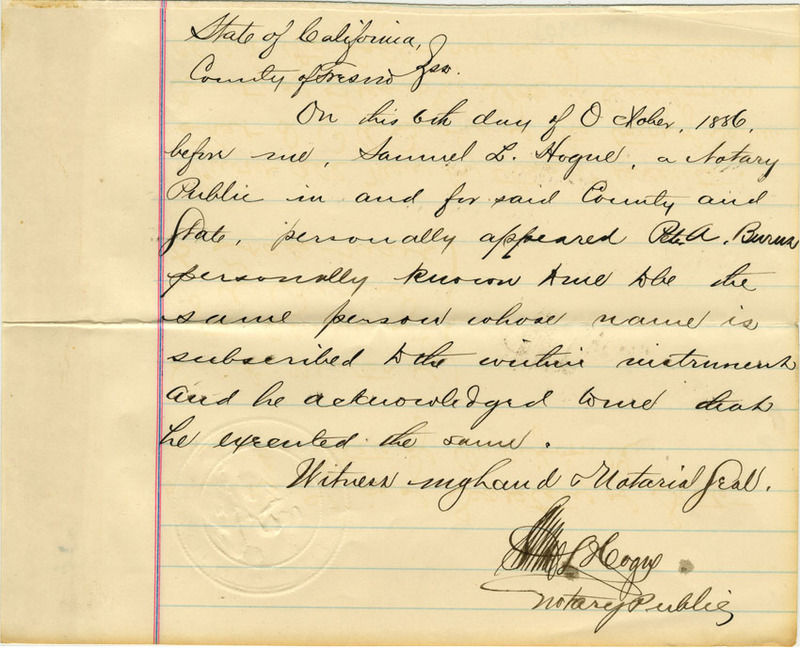 State of California,
County of Fresno } ss.
On this 6th day of October, 1886,
before me, Samuel L. Hogue, a Notary
Public in and for said County and
State, personally appeared A. Burns
personally known to me to be the
same person whose name is
subscribed to the within instrument
and he acknowledged to me that
he executed the same.
Witness my hand & Notarial Seal.
L Hogue
Notary Public,